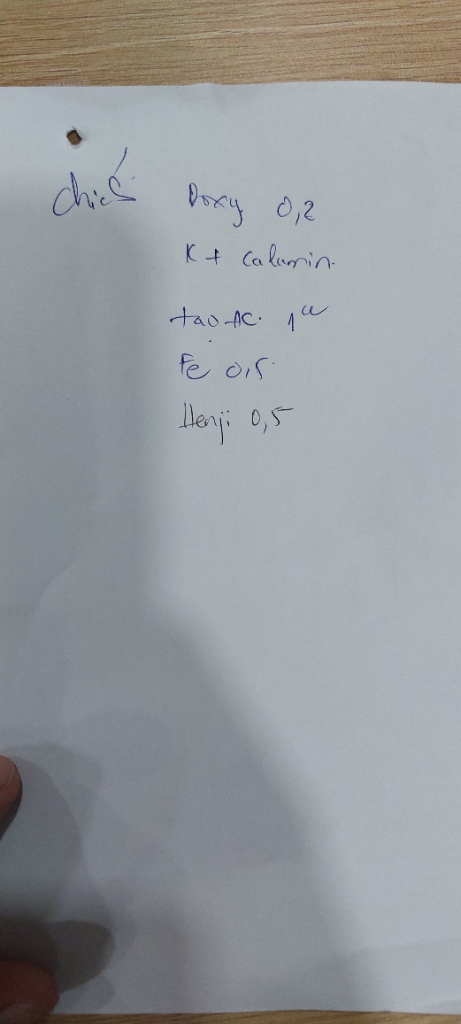 chiều Doxy 0,2
K + calamin.
tao AC. 1 cu
Fe 0,5
Henji 0,5